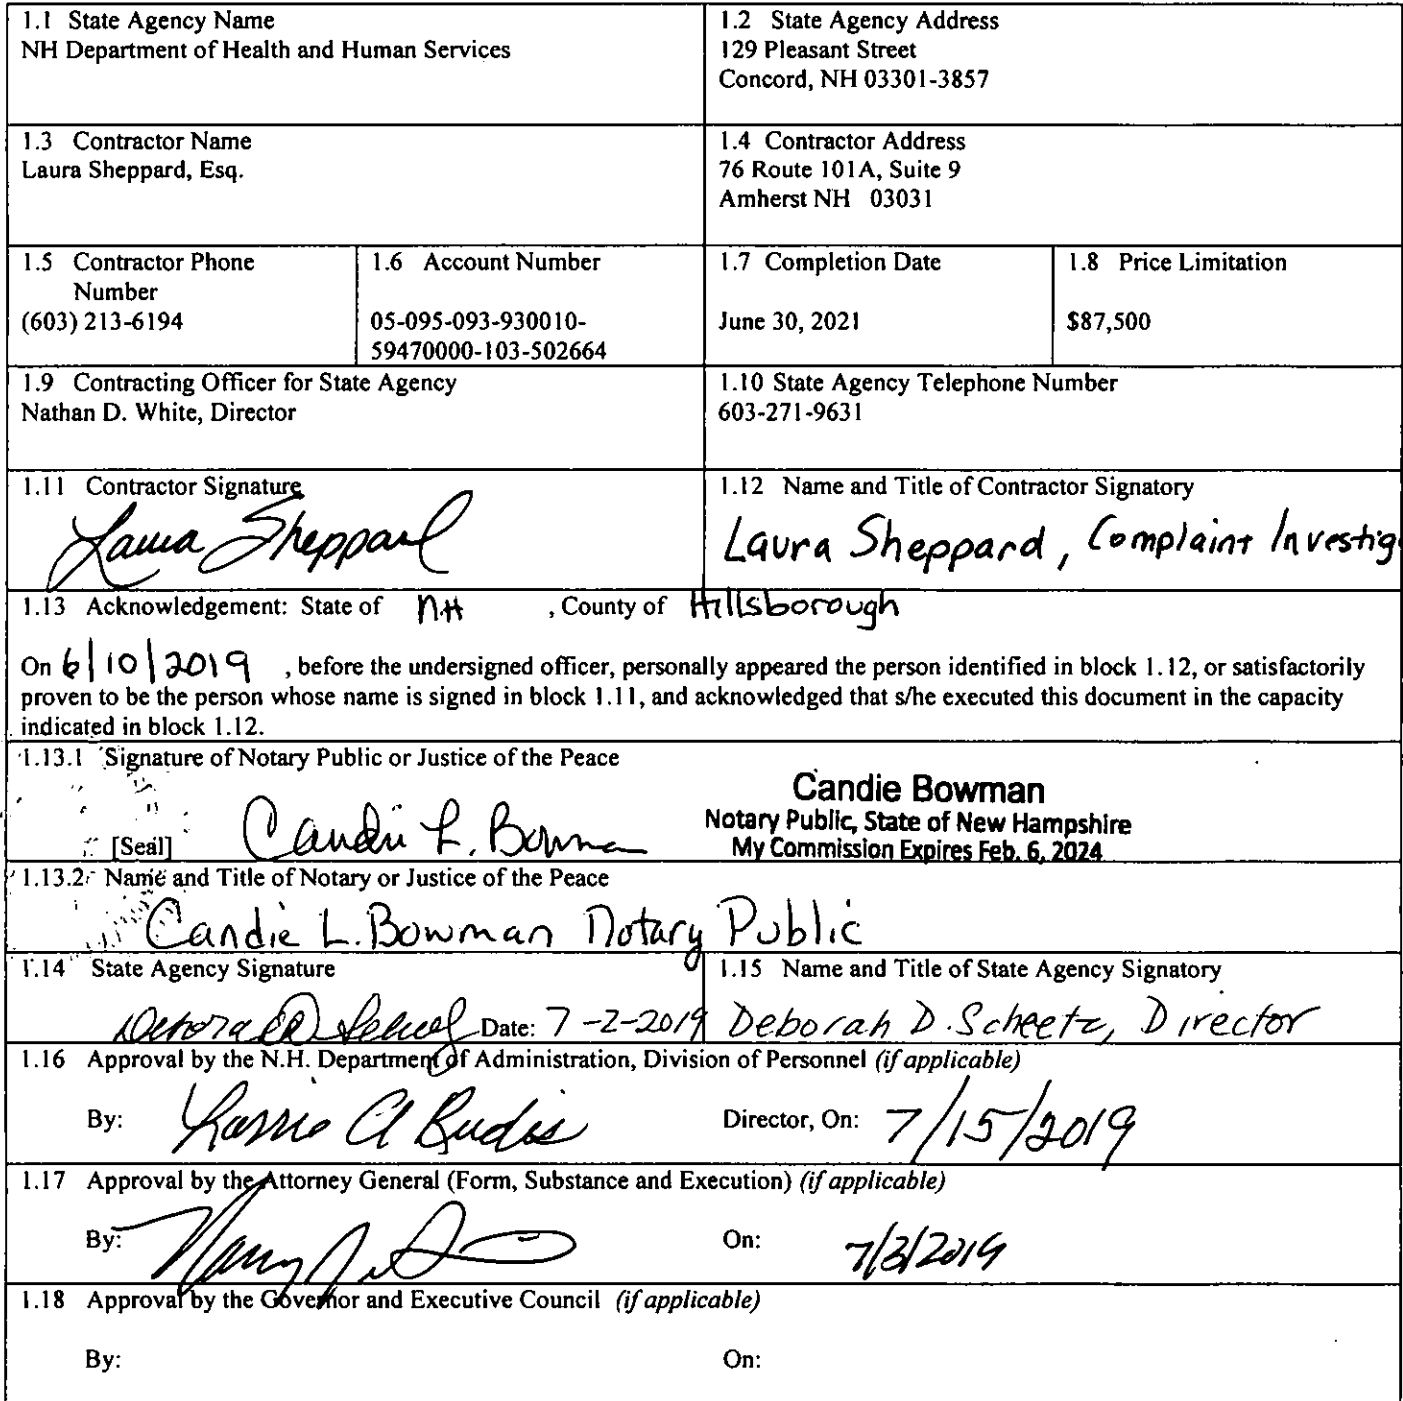 1.1 State Agency Name
NH Department of Health and Human Services
1.2 State Agency Address
129 Pleasant Street
Concord, NH 03301-3857
1.3 Contractor Name
Laura Sheppard, Esq.
1.4 Contractor Address
76 Route 101A, Suite 9
Amherst NH 03031
1.5 Contractor Phone
Number
(603) 213-6194
1.6 Account Number
05-095-093-930010-
59470000-103-502664
1.7 Completion Date
June 30, 2021
1.8 Price Limitation
$87,500
1.9 Contracting Officer for State Agency
Nathan D. White, Director
1.10 State Agency Telephone Number
603-271-9631
1.11 Contractor Signature
Laura Sheppard
1.12 Name and Title of Contractor Signatory
Laura Sheppard, Complaint Investig
1.13 Acknowledgement: State of NH , County of Hillsborough
On 6/10/2019 , before the undersigned officer, personally appeared the person identified in block 1.12, or satisfactorily
proven to be the person whose name is signed in block 1.11, and acknowledged that s/he executed this document in the capacity
indicated in block 1.12.
1.13.1 Signature of Notary Public or Justice of the Peace
[Seal] Candie L. Bowman
Candie Bowman
Notary Public, State of New Hampshire
My Commission Expires Feb. 6, 2024
1.13.2 Name and Title of Notary or Justice of the Peace
Candie L. Bowman Notary Public
1.14 State Agency Signature
Date: 7-2-2019
1.15 Name and Title of State Agency Signatory
Deborah D. Scheetz, Director
1.16 Approval by the N.H. Department of Administration, Division of Personnel (if applicable)
By: Director, On: 7/15/2019
1.17 Approval by the Attorney General (Form, Substance and Execution) (if applicable)
By: On: 7/3/2019
1.18 Approval by the Governor and Executive Council (if applicable)
By: On: